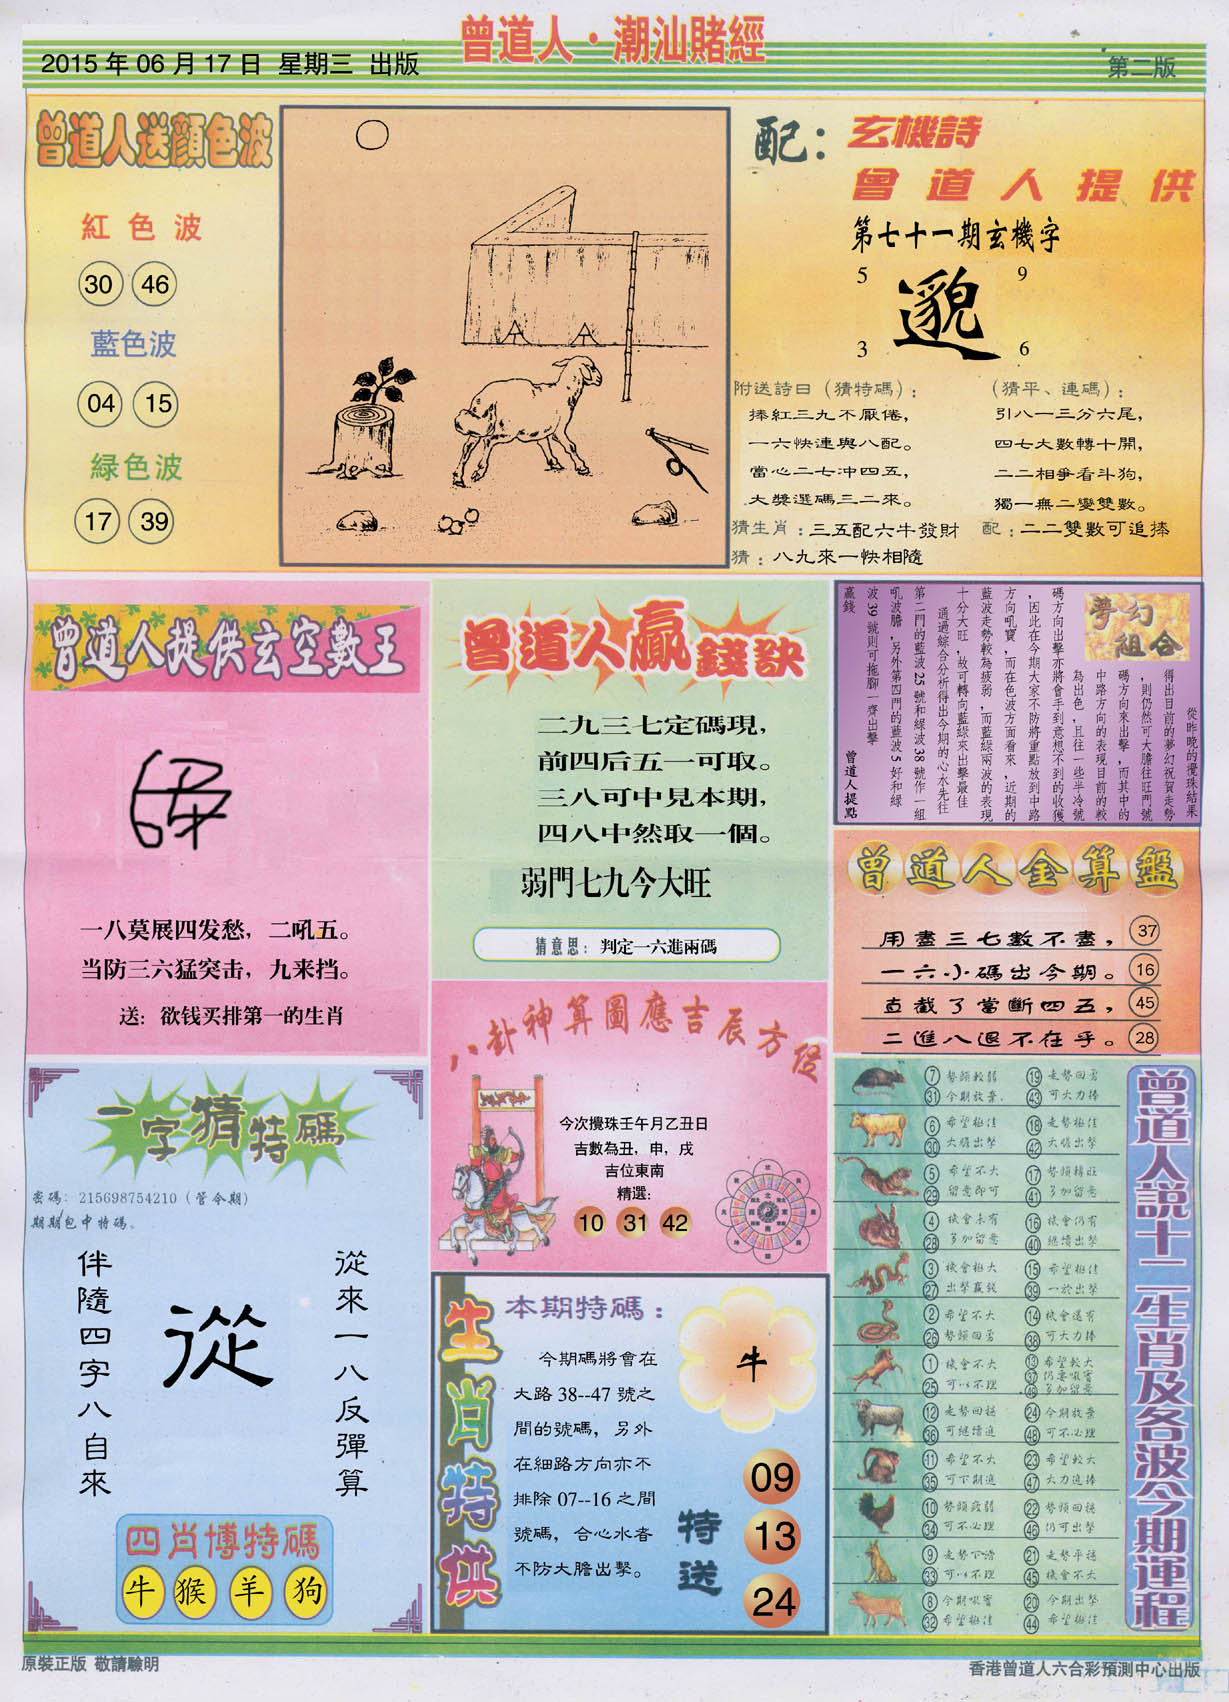 曾道人·潮汕賭經
2015 年 06 月 17 日 星期三 出版
第二版
曾道人送顏色波
紅色波
30 46
藍色波
04 15
緑色波
17 39
配：
玄機詩
曾道人提供
第七十一期玄機字
5 9
邈
3 6
附送詩曰（猜特碼）：
捧紅三九不厭倦，
一六快連與八配。
當心二七冲四五，
大獎選碼三二來。
（猜平、連碼）：
引八一三分六尾，
四七大數轉十開，
二二相爭看斗狗，
獨一無二變雙數。
猜生肖：三五配六牛發財
配：二二雙數可追捧
猜：八九來一快相隨
曾道人提供玄空數王
一八莫展四发愁，二吼五。
当防三六猛突击，九来挡。
送：欲钱买排第一的生肖
曾道人贏錢訣
二九三七定碼現，
前四后五一可取。
三八可中見本期，
四八中然取一個。
弱門七九今大旺
猜意思：判定一六進兩碼
夢幻
組合
從昨晚的攪珠結果
得出目前的夢幻祝賀走勢
，則仍然可大膽往旺門號
碼方向來出擊，而其中的
中路方向的表現目前的較
為出色，且往一些半冷號
碼方向出擊亦將會手到意想不到的收獲
，因此在今期大家不防將重點放到中路
方向吼寶，而在色波方面看來，近期的
藍波走勢較為疲弱，而藍綠兩波的表現
十分大旺，故可轉向藍綠來出擊最佳
通過綜合分析得出今期的心水先往
第二門的藍波 25 號和綠波 38 號作一組
吼波膽，另外第四門的藍波 5 好和綠
波 39 號則可拖腳一齊出擊
贏錢
曾道人提點
曾道人金算盤
用盡三七數不盡， 37
一六小碼出今期。 16
直截了當斷四五， 45
二進八退不在乎。 28
一字猜特碼
密碼：215698754210（管今期）
期期包中特碼。
從來一八反彈算
從
伴隨四字八自來
四肖博特碼
牛 猴 羊 狗
八卦神算圖應吉辰方位
今次攪珠壬午月乙丑日
吉數為丑，申，戌
吉位東南
精選:
10 31 42
生肖特供
本期特碼：
今期碼將會在
大路 38--47 號之
間的號碼，另外
在細路方向亦不
排除 07--16 之間
號碼，合心水者
不防大膽出擊。
牛
特送
09
13
24
曾道人說十二生肖及各波今期運程
7 勢頭較弱 19 走勢回勇
31 今期放棄. 43 可大力捧
6 希望極佳 18 走勢極佳
30 大膽出擊 42 大膽出擊
5 希望不大 17 勢頭轉旺
29 留意即可 41 多加留意
4 機會未有 16 機會仍有
28 多加留意 40 繼續出擊
3 機會極大 15 希望極佳
27 出擊贏錢 39 一於出擊
2 希望不大 14 機會還有
26 勢頭回勇 38 可大力捧
1 機會不大 13 希望較大
25 可以不理 37 仍要吼實
49 多加留意
12 走勢回穩 24 今期放棄
36 可繼續追 48 可不必理
11 希望不大 23 希望較大
35 可下期追 47 大力追捧
10 勢頭疲弱 22 勢頭回穩
34 可不必理 46 仍可出擊
9 走勢下滑 21 走勢平穩
33 可以不理 45 機會不大
8 今期吸實 20 今期出擊
32 希望極佳 44 希望極佳
原裝正版 敬請驗明
香港曾道人六合彩預測中心出版